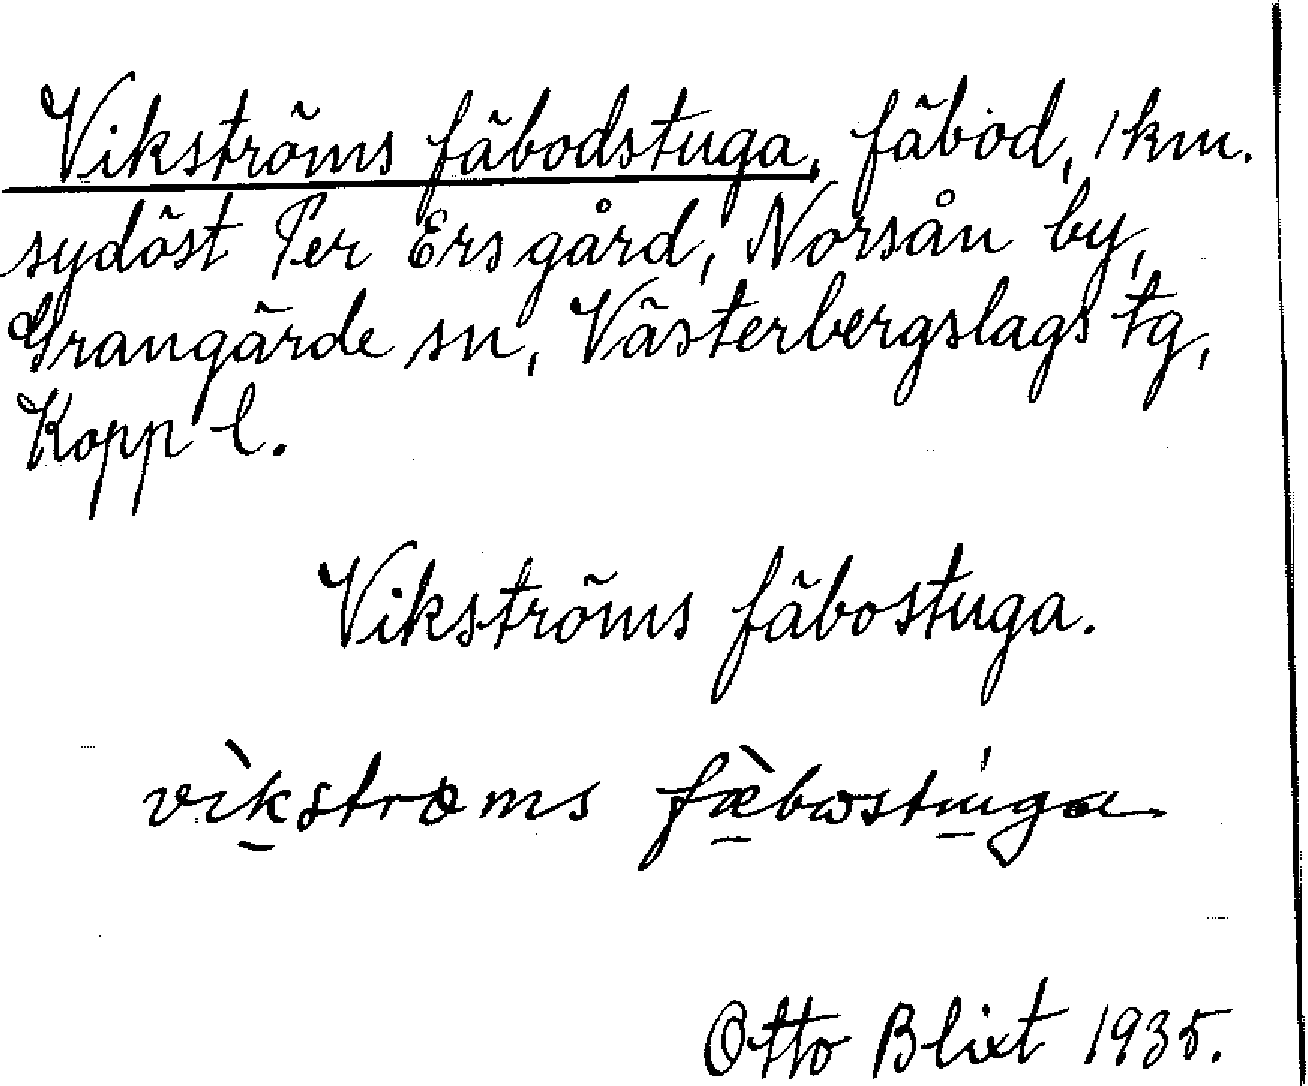 Vikströms fäbodstuga, fäbod, 1 km.
sydöst Per Ersgård, Norsån by,
Grangärde sn, Västerbergslags tg,
Kopp l.
Vikströms fäbostuga.
vìkstrøms fæ̀bostúga
Otto Blixt 1935.